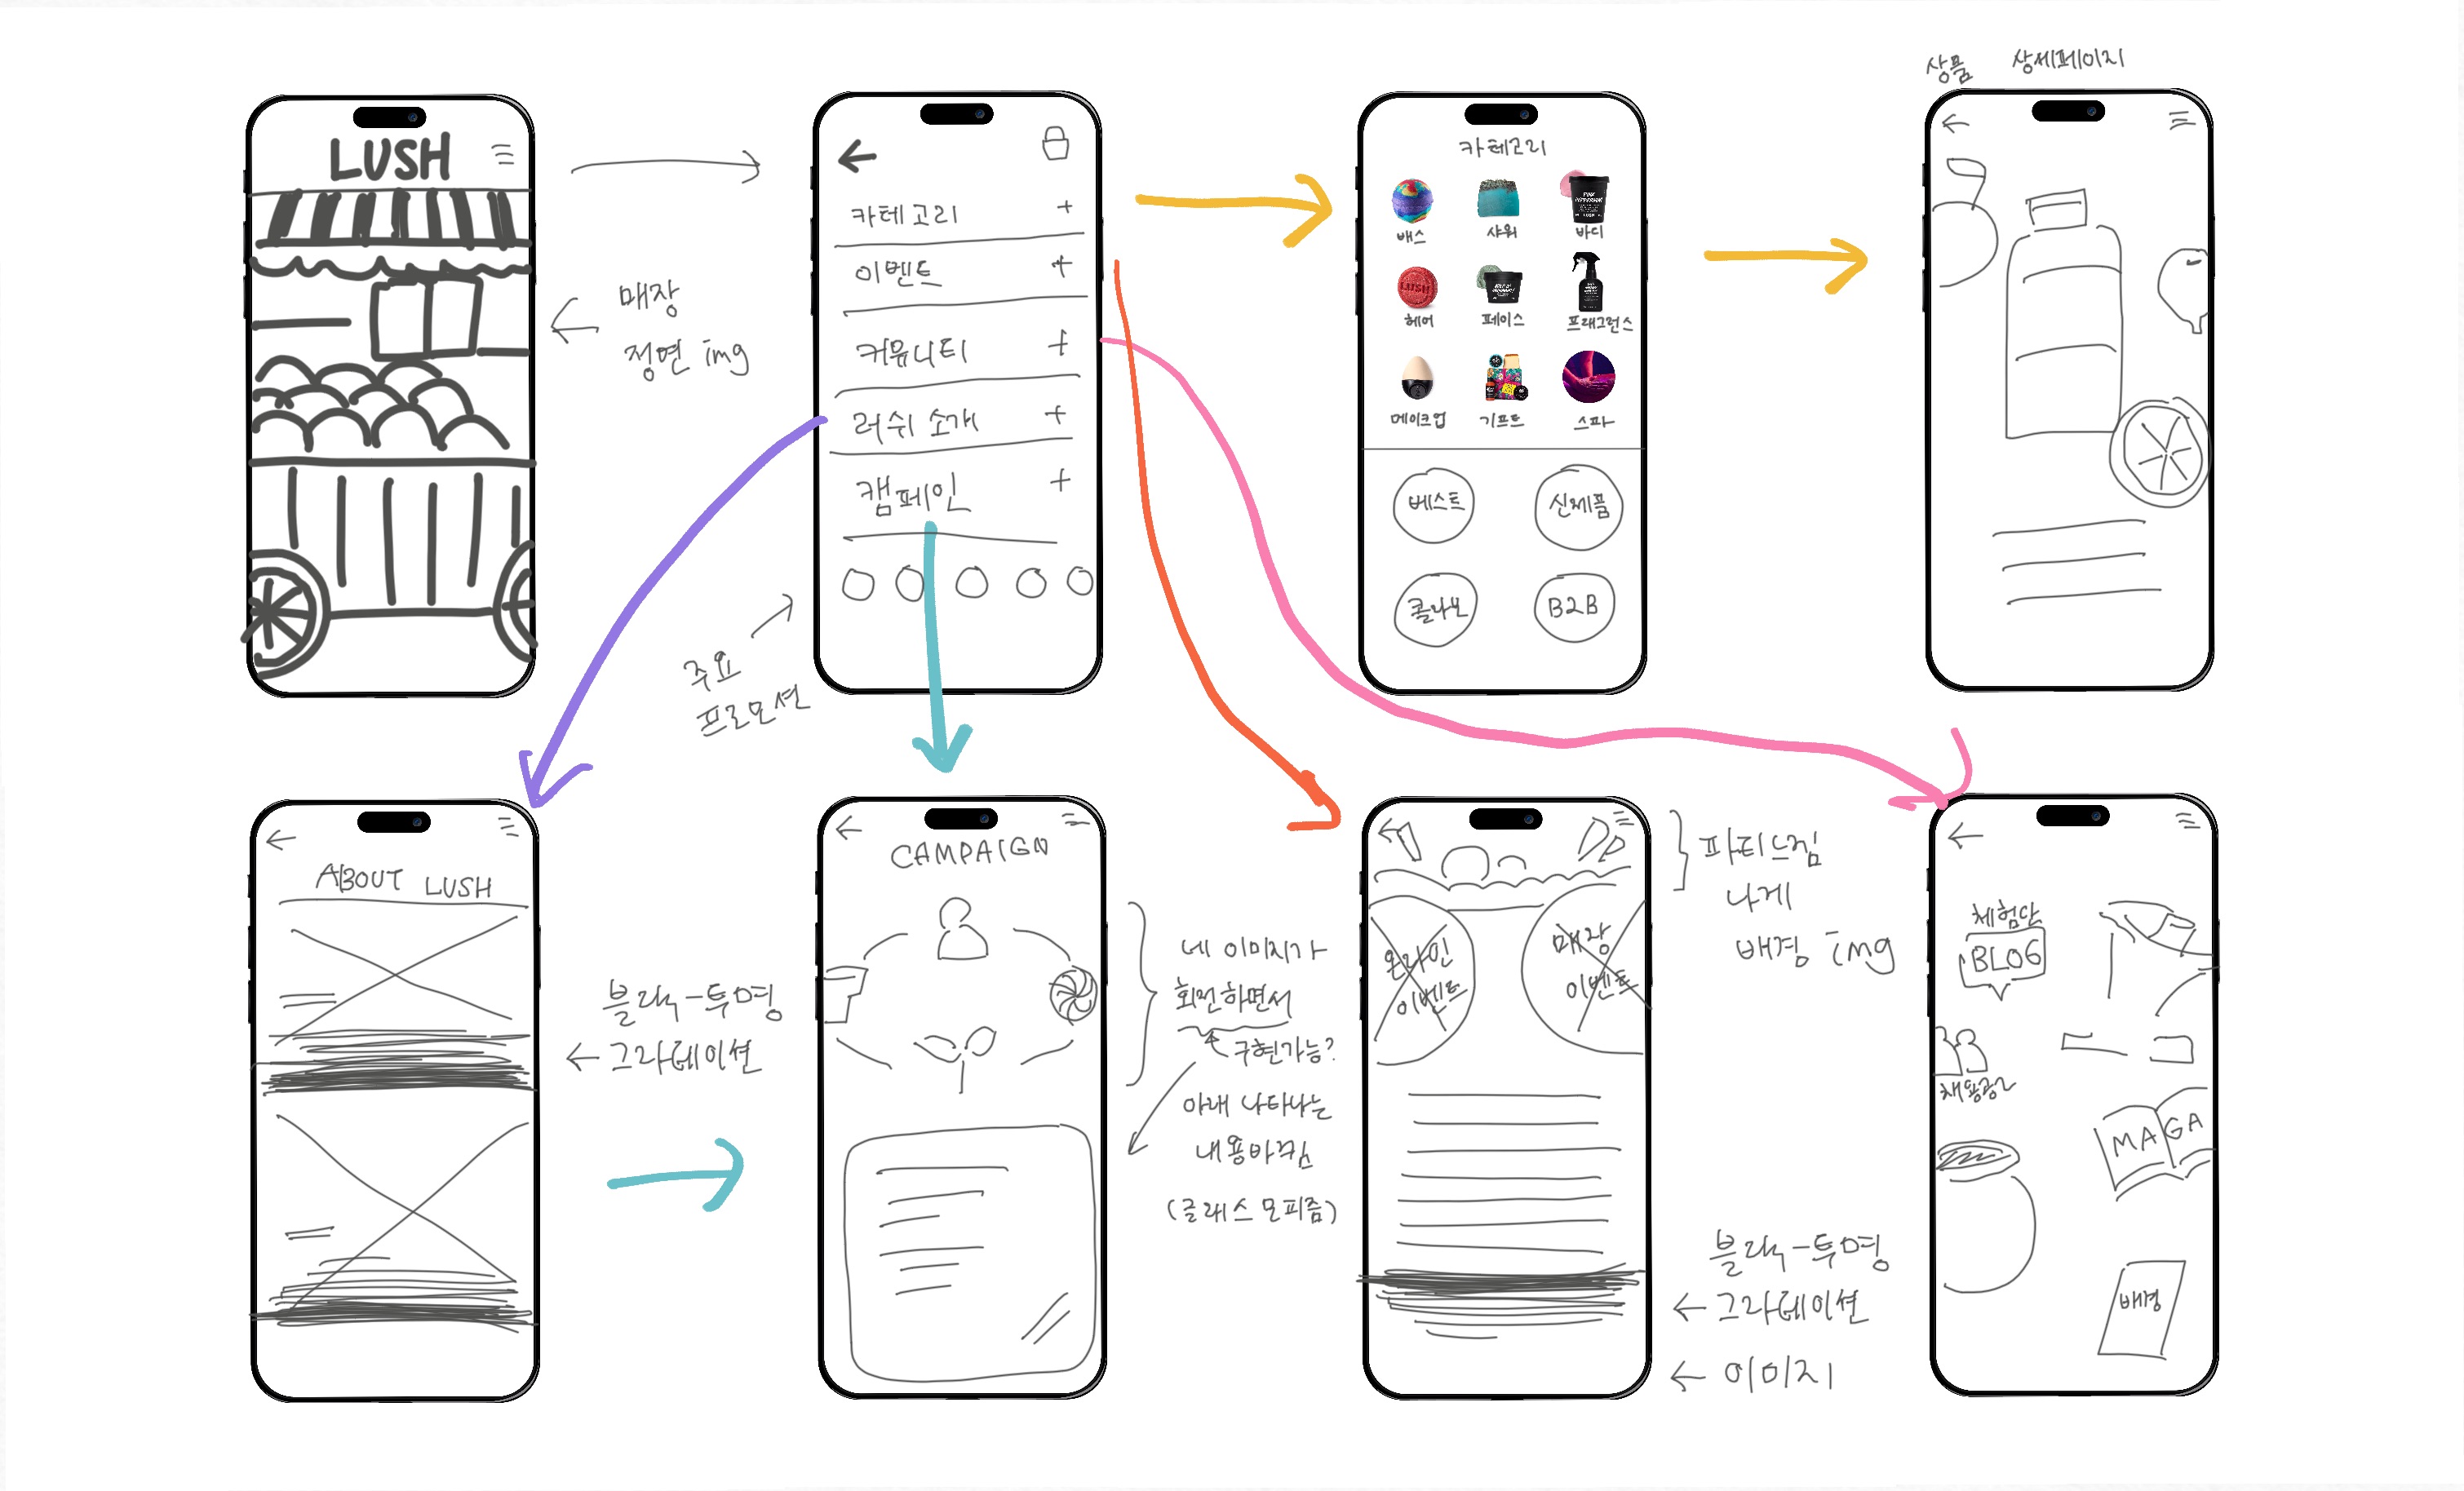 상품 상세페이지
LUSH
매장
정면 img
카테고리 +
이벤트 +
커뮤니티 +
러쉬 소개 +
캠페인 +
주요
프로모션
카테고리
배스 샤워 바디
헤어 페이스 프래그런스
메이크업 기프트 스파
베스트 신제품
콜라보 B2B
ABOUT LUSH
블랙-투명
그라데이션
CAMPAIGN
네 이미지가
회전하면서
구현가능?
아래 나타나는
내용바뀜
(글래스모피즘)
온라인
이벤트
매장
이벤트
파티느낌
나게
배경 img
블랙-투명
그라데이션
이미지
체험단
BLOG
채용공고
MAGA
배경